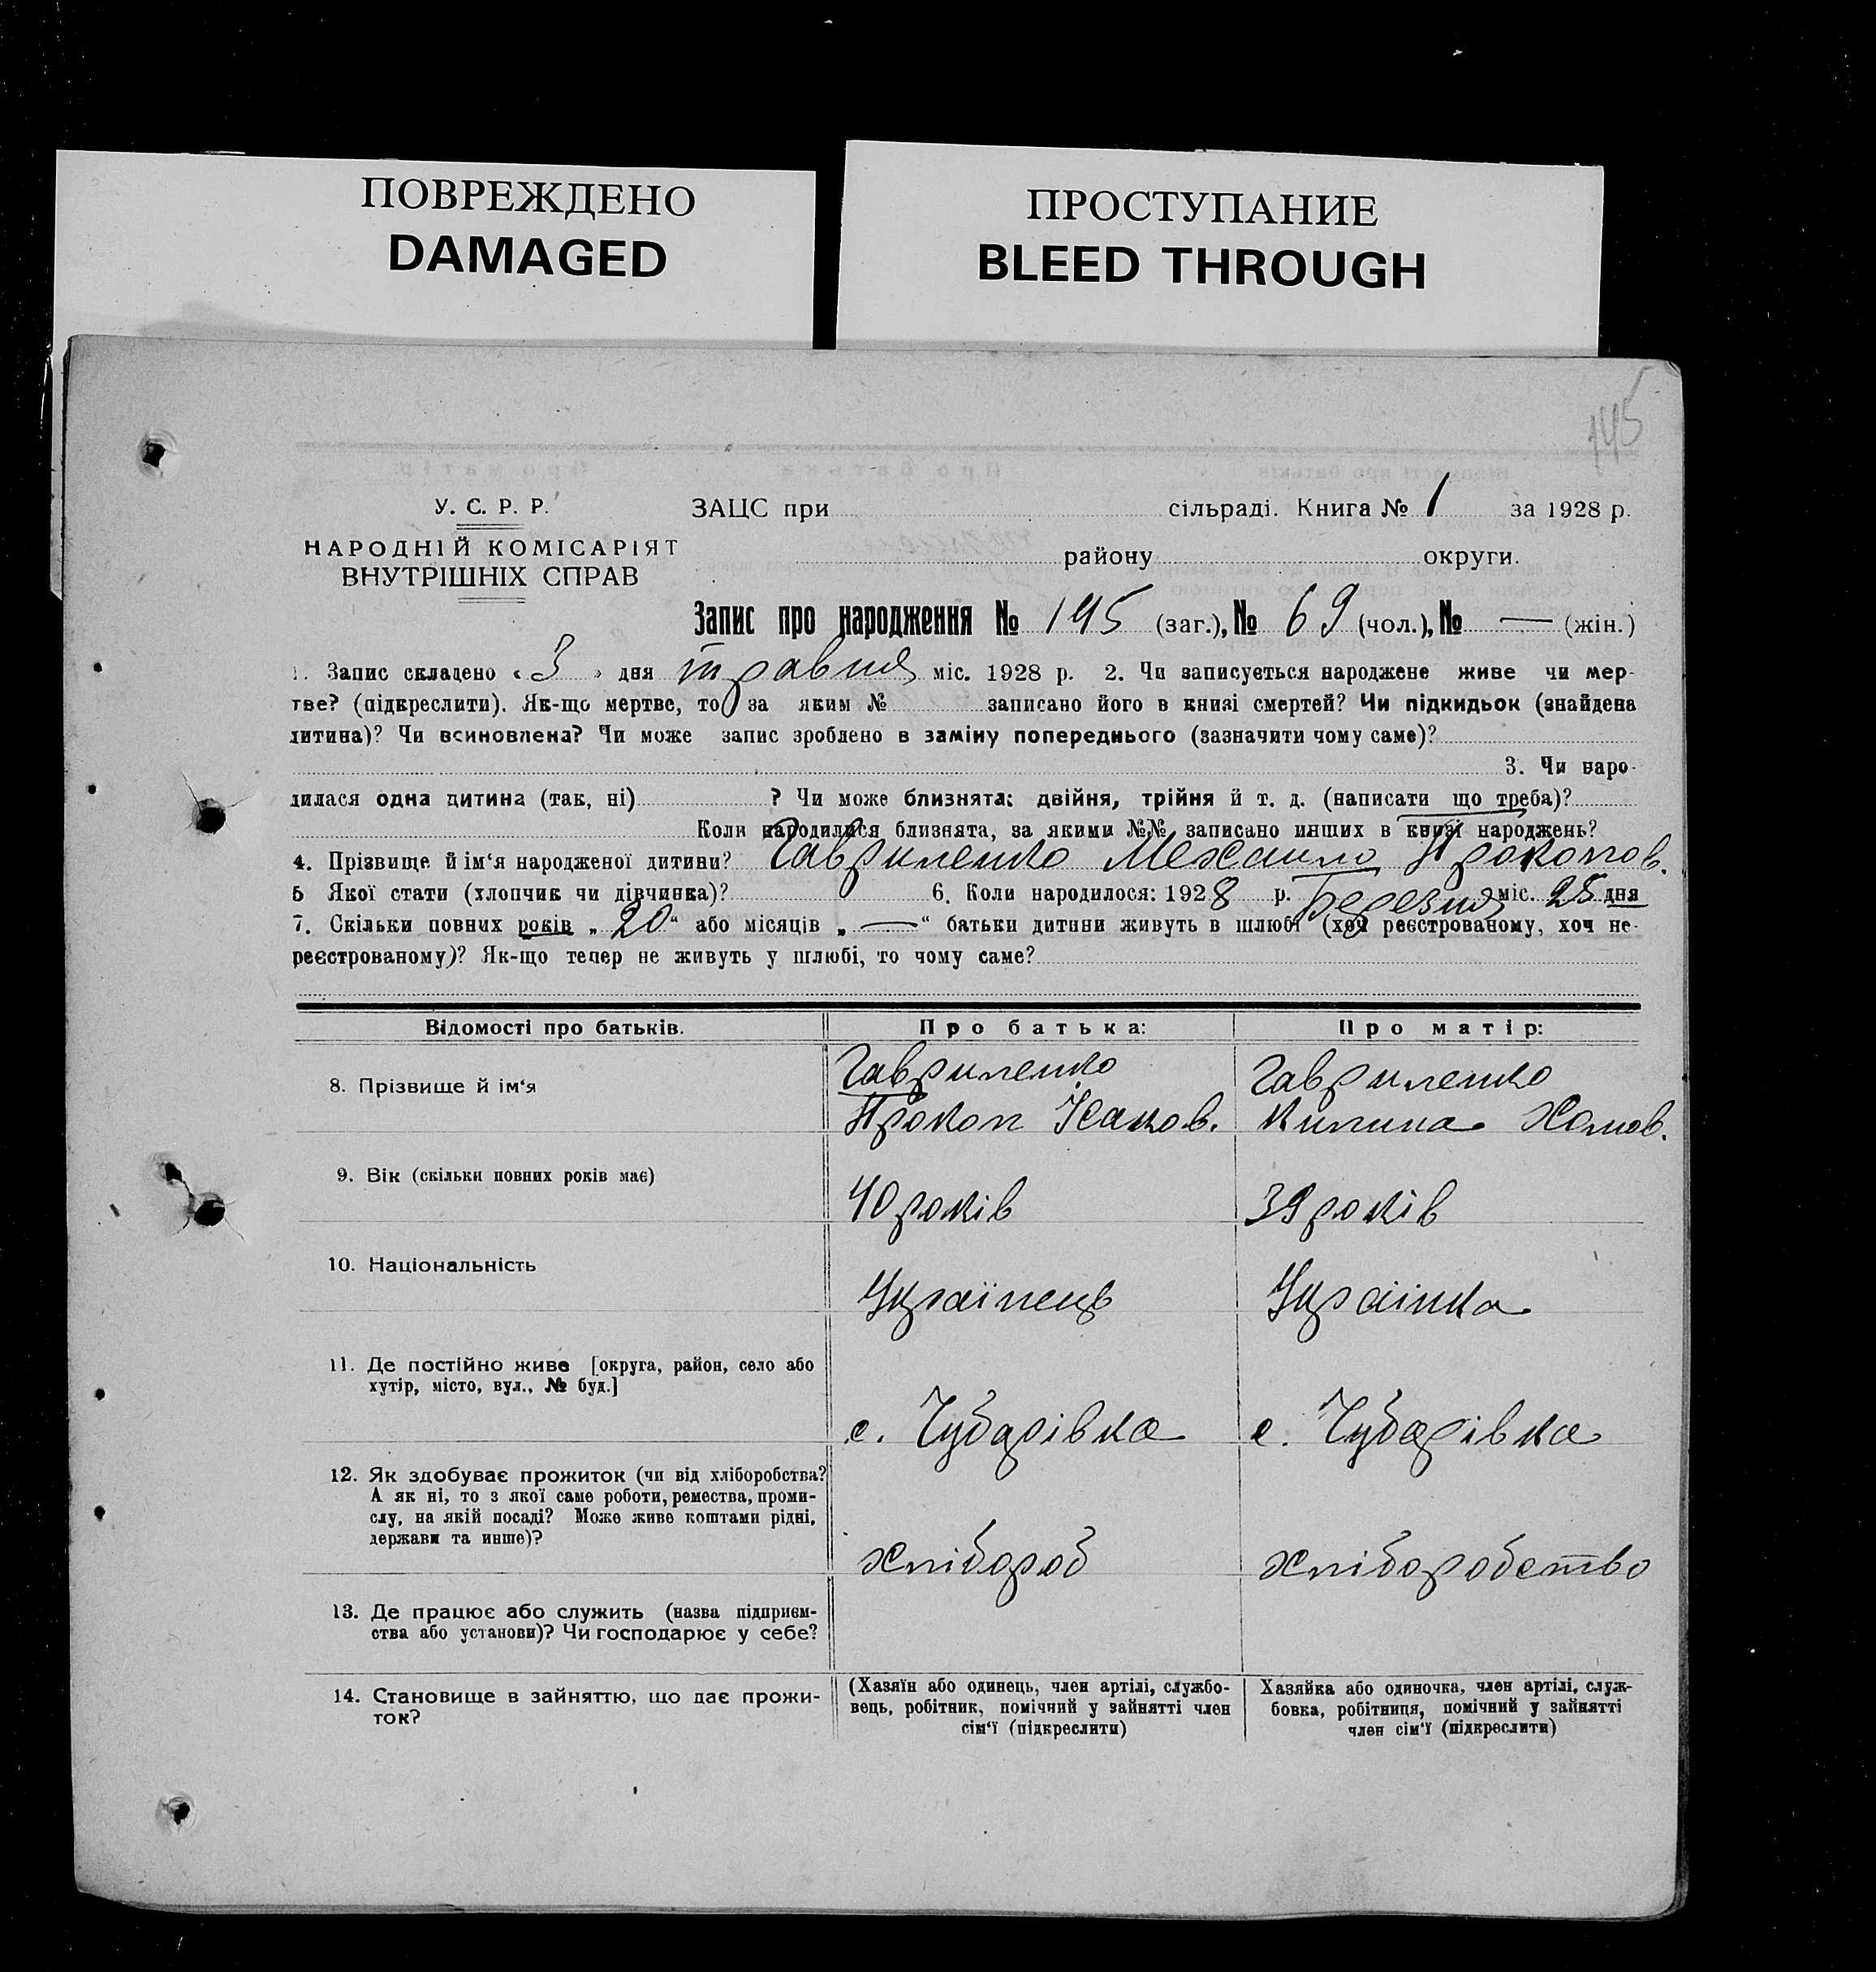 ПОВРЕЖДЕНО
DAMAGED
ПРОСТУПАНИЕ
BLEED THROUGH
145
У. С. Р. Р.
НАРОДНІЙ КОМІСАРІЯТ
ВНУТРІШНІХ СПРАВ
ЗАЦС при сільраді. Книга № 1 за 1928 р.
району округи.
Запис про народження № 145 (заг.), № 69 (чол.), № — (жін.)
1. Запис складено « 3 » дня травня міс. 1928 р. 2. Чи записується народжене живе чи мер-
тве? (підкреслити). Як-що мертве, то за яким № записано його в книзі смертей? Чи підкидьок (знайдена
дитина)? Чи всиновлена? Чи може запис зроблено в заміну попереднього (зазначити чому саме)?
3. Чи наро-
дилася одна дитина (так, ні) ? Чи може близнята: двійня, трійня й т. д. (написати що треба)?
Коли народилися близнята, за якими №№ записано инших в книзі народжень?
4. Прізвище й ім‘я народженої дитини? Гавриленко Механло Прокопов.
5 Якої стати (хлопчик чи дівчинка)? 6. Коли народилося: 1928 р. Березня міс. 28 дня
7. Скільки повних років „ 20 “ або місяців „ — “ батьки дитини живуть в шлюбі (хоч реєстрованому, хоч не-
реєстрованому)? Як-що тепер не живуть у шлюбі, то чому саме?
Відомості про батьків. Про батька: Про матір:
8. Прізвище й ім‘я
Гавриленко
Прокоп Ісаков.
Гавриленко
Килина Хомов.
9. Вік (скільки повних років має)
40 років
39 років
10. Національність
Українець
Українка
11. Де постійно живе [округа, район, село або
хутір, місто, вул., № буд.]
с. Чубарівка
с. Чубарівка
12. Як здобуває прожиток (чи від хліборобства?
А як ні, то з якої саме роботи, ремества, проми-
слу, на якій посаді? Може живе коштами рідні,
держави та инше)?
хлібороб
хліборобство
13. Де працює або служить (назва підприєм-
ства або установи)? Чи господарює у себе?
14. Становище в зайняттю, що дає прожи-
ток?
(Хазяїн або одинець, член артілі, службо-
вець, робітник, помічний у зайнятті член
сім‘ї (підкреслити)
Хазяйка або одиночка, член артілі, служ-
бовка, робітниця, помічний у зайнятті
член сім‘ї (підкреслити)